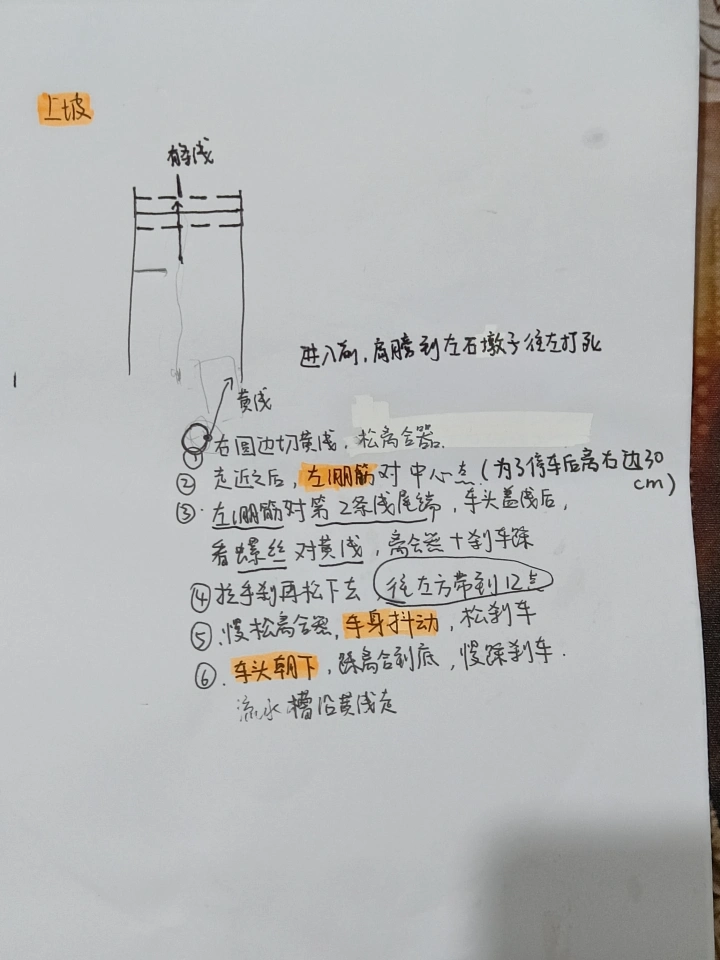 上坡
黄线
进入前,肩膀到左石墩子往左打死
① 右圆边切黄线,松离合器.
② 走近之后,左1钢筋对中心点(为了停车后离右边30
cm)
③.左1钢筋对第2条线尾端,车头盖线后,
看螺丝对黄线,离合器+刹车踩
④ 拉手刹再松下去 往左方带到12点
⑤.慢松离合器,车身抖动,松刹车
⑥.车头朝下,踩离合到底,慢踩刹车.
流水槽沿黄线走